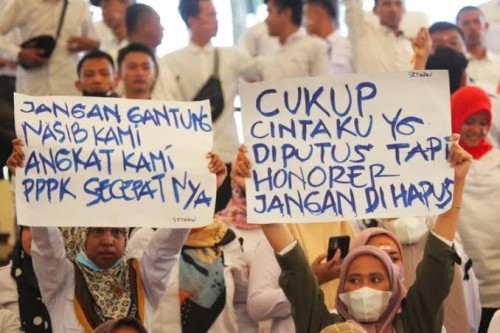 JANGAN GANTUNG
NASIB KAMI
ANGKAT KAMI
PPPK SECEPATNYA
SETWAN
SETWAN
CUKUP
CINTAKU YG
DIPUTUS TAPI
HONORER
JANGAN DIHAPUS